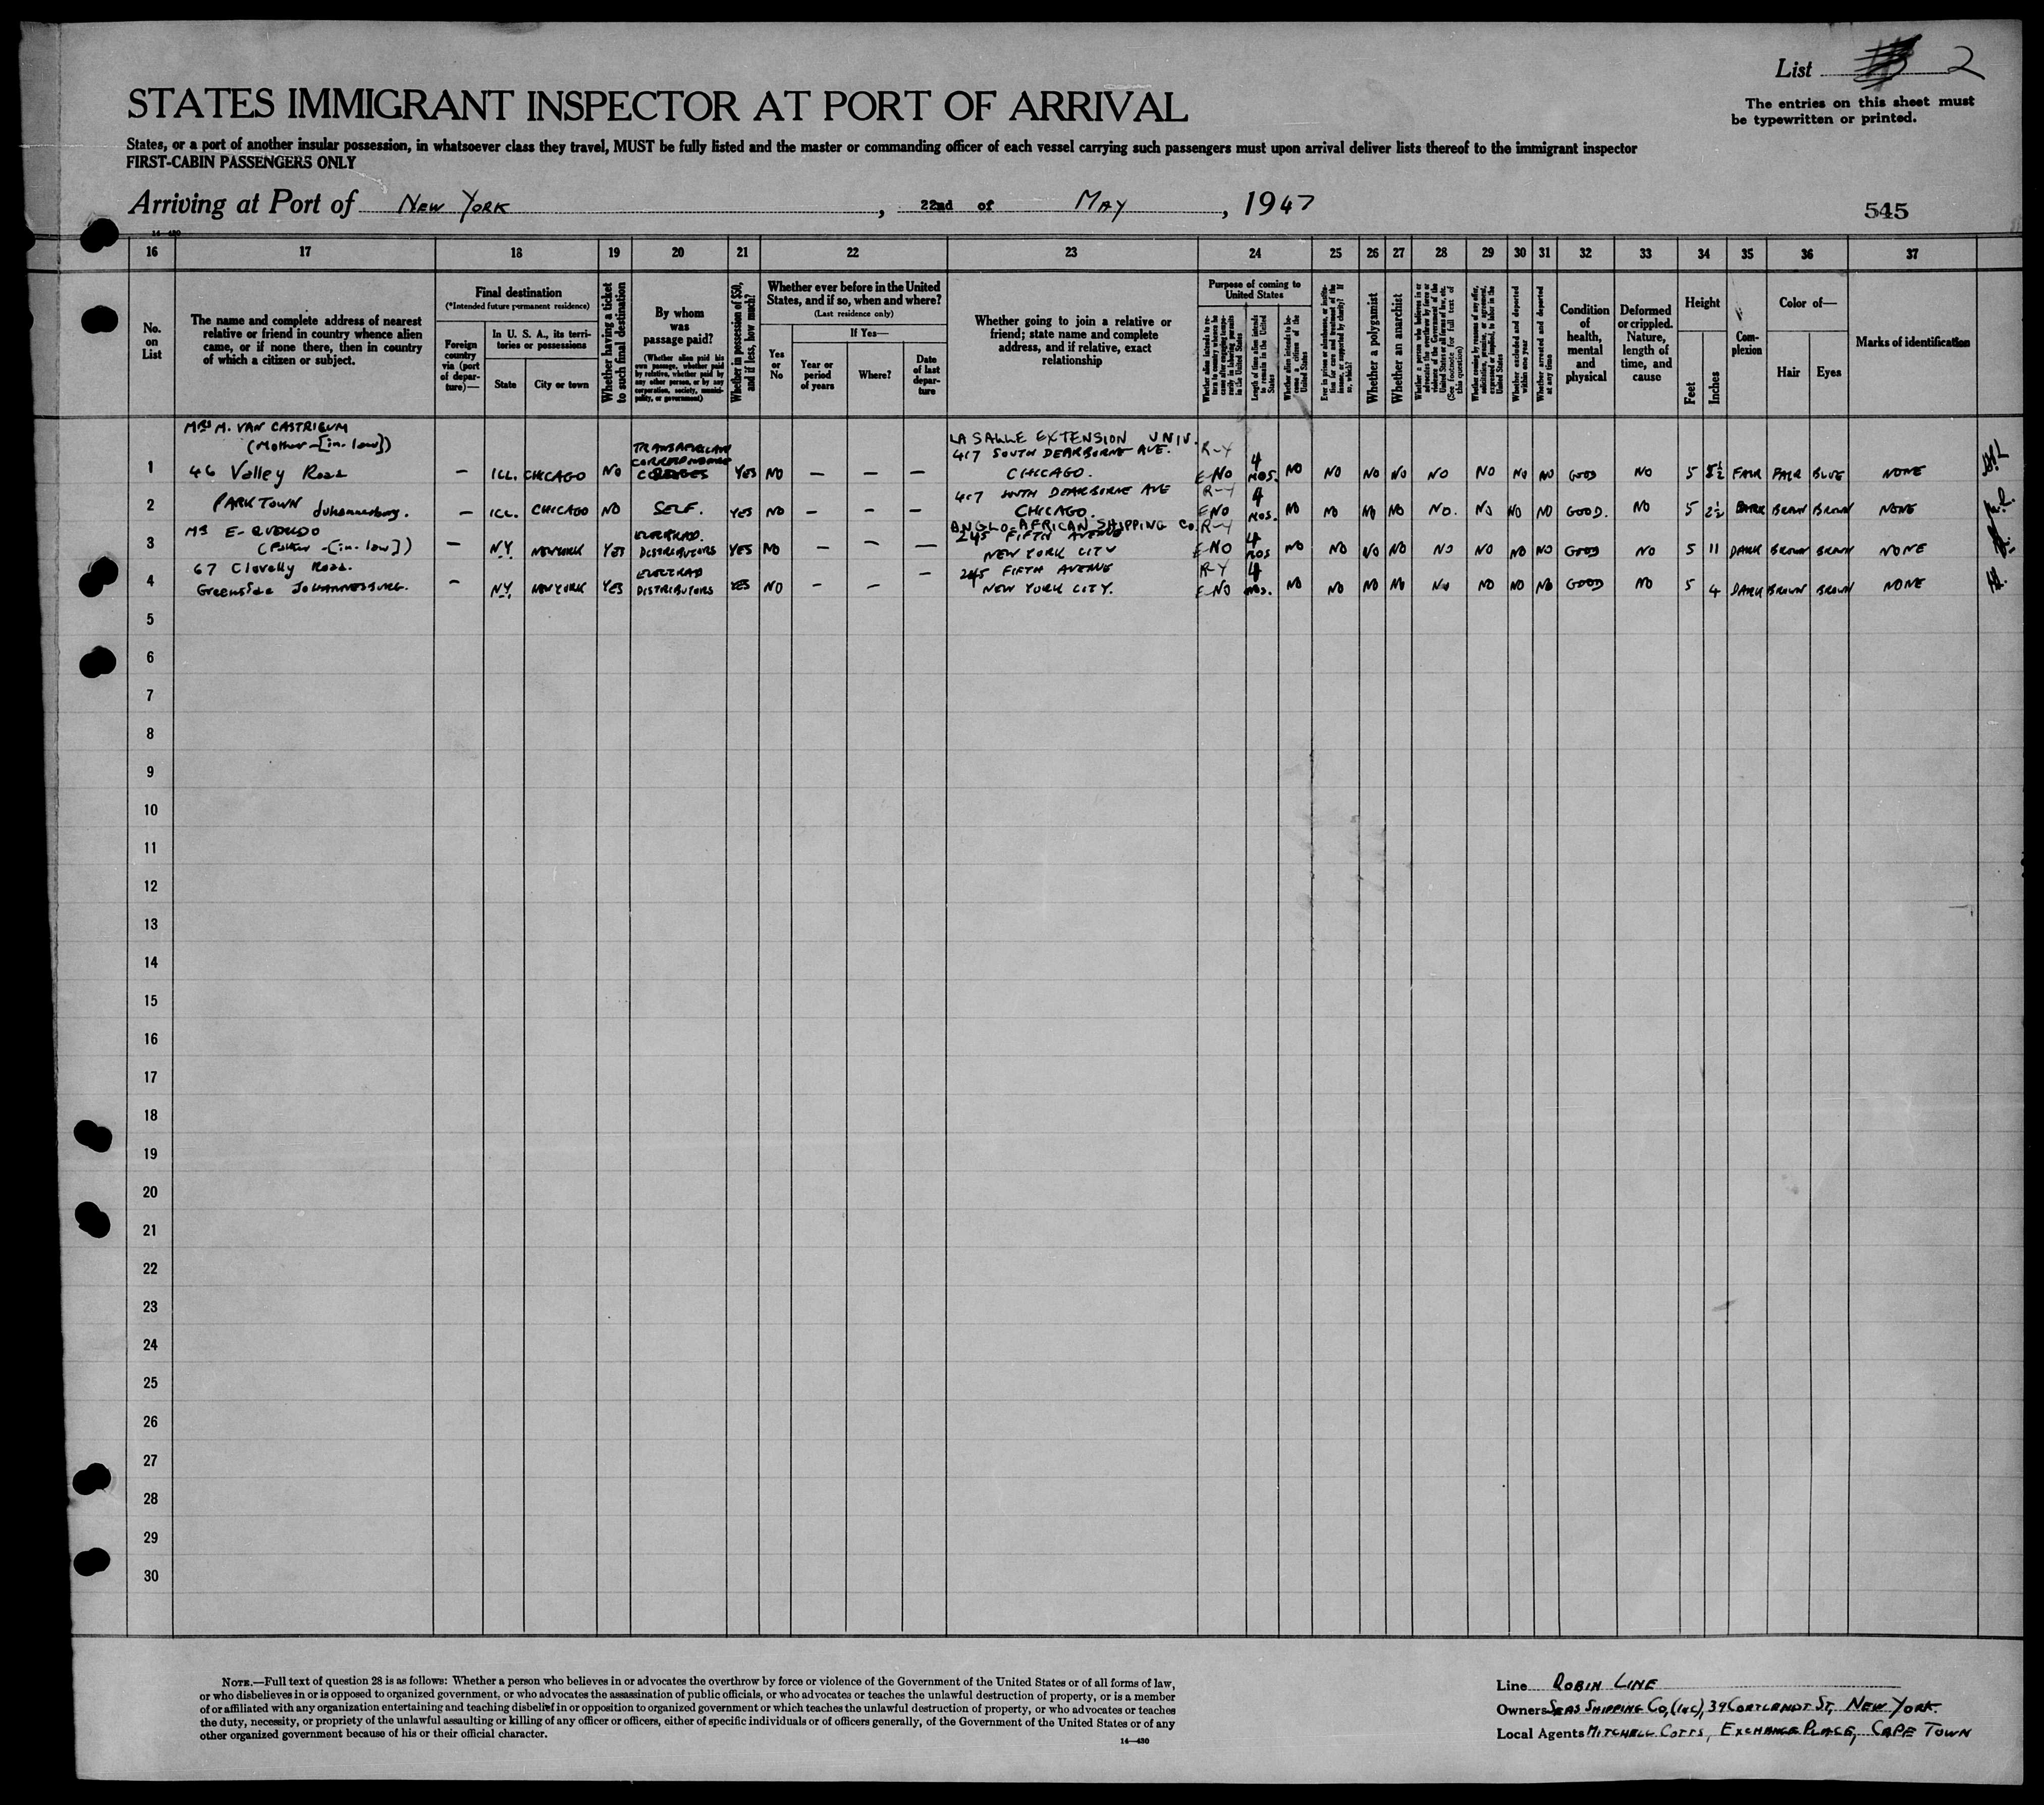 List 2
The entries on this sheet must
be typewritten or printed.
STATES IMMIGRANT INSPECTOR AT PORT OF ARRIVAL
States, or a port of another insular possession, in whatsoever class they travel, MUST be fully listed and the master or commanding officer of each vessel carrying such passengers must upon arrival deliver lists thereof to the immigrant inspector
FIRST-CABIN PASSENGERS ONLY
Arriving at Port of NEW YORK, 22nd of MAY, 1947
545
14-430
16 17 18 19 20 21 22 23 24 25 26 27 28 29 30 31 32 33 34 35 36 37
No. on List
The name and complete address of nearest
relative or friend in country whence alien
came, or if none there, then in country
of which a citizen or subject.
Final destination
(*Intended future permanent residence)
Foreign country via (port of departure)—
In U. S. A., its territories or possessions
State
City or town
Whether having a ticket to such final destination
By whom was passage paid?
(Whether alien paid his own passage, whether paid by relative, whether paid by any other person, or by any corporation, society, municipality, or government)
Whether in possession of $50, and if less, how much?
Whether ever before in the United
States, and if so, when and where?
(Last residence only)
Yes or No
If Yes—
Year or period of years
Where?
Date of last departure
Whether going to join a relative or
friend; state name and complete
address, and if relative, exact
relationship
Purpose of coming to United States
Whether alien intends to return to country whence he came after engaging temporarily in laboring pursuits in the United States
Length of time alien intends to remain in the United States
Whether alien intends to become a citizen of the United States
Ever in prison or almshouse, or institution for care and treatment of the insane, or supported by charity? If so, which?
Whether a polygamist
Whether an anarchist
Whether a person who believes in or advocates the overthrow by force or violence of the Government of the United States or all forms of law, etc. (See footnote for full text of this question)
Whether coming by reason of any offer, solicitation, promise, or agreement, expressed or implied, to labor in the United States
Whether excluded and deported within one year
Whether arrested and deported at any time
Condition of health, mental and physical
Deformed or crippled. Nature, length of time, and cause
Height
Feet
Inches
Complexion
Color of—
Hair
Eyes
Marks of identification
MRS M. VAN CASTRICUM
(Mother-[in-law])
LA SALLE EXTENSION UNIV.
TRANSAFRICAN
417 SOUTH DEARBORNE AVE. R-Y
CORRESPONDENCE
1 46 Valley Road — ILL. CHICAGO NO COLLEGES YES NO — — — CHICAGO. E-NO 4 MOS. NO NO NO NO NO NO NO NO GOOD NO 5 8½ FAIR FAIR BLUE NONE
417 SOUTH DEARBORNE AVE R-Y
2 PARKTOWN Johannesburg. — ILL. CHICAGO NO SELF. YES NO — — — CHICAGO. E-NO 4 MOS. NO NO NO NO NO. NO NO NO GOOD. NO 5 2½ DARK BROWN BROWN NONE
MR E. QVORDO
ANGLO-AFRICAN SHIPPING CO. R-Y
245 FIFTH AVENUE
ELECTRAD.
3 (Father-[in-law]) — N.Y. NEW YORK YES DISTRIBUTORS YES NO — — — NEW YORK CITY E-NO 4 MOS NO NO NO NO NO NO NO NO GOOD NO 5 11 DARK BROWN BROWN NONE
67 Clovelly Road.
ELECTRAD
245 FIFTH AVENUE R-Y
4 Greenside JOHANNESBURG. — N.Y. NEW YORK YES DISTRIBUTORS YES NO — — — NEW YORK CITY. E-NO 4 MOS. NO NO NO NO NO NO NO NO GOOD NO 5 4 DARK BROWN BROWN NONE
5
6
7
8
9
10
11
12
13
14
15
16
17
18
19
20
21
22
23
24
25
26
27
28
29
30
NOTE.—Full text of question 28 is as follows: Whether a person who believes in or advocates the overthrow by force or violence of the Government of the United States or of all forms of law,
or who disbelieves in or is opposed to organized government, or who advocates the assassination of public officials, or who advocates or teaches the unlawful destruction of property, or is a member
of or affiliated with any organization entertaining and teaching disbelief in or opposition to organized government or which teaches the unlawful destruction of property, or who advocates or teaches
the duty, necessity, or propriety of the unlawful assaulting or killing of any officer or officers, either of specific individuals or of officers generally, of the Government of the United States or of any
other organized government because of his or their official character.
14—430
Line ROBIN LINE
Owners SEAS SHIPPING CO, (INC), 39 CORTLANDT ST, NEW YORK.
Local Agents MITCHELL COTTS, EXCHANGE PLACE, CAPE TOWN